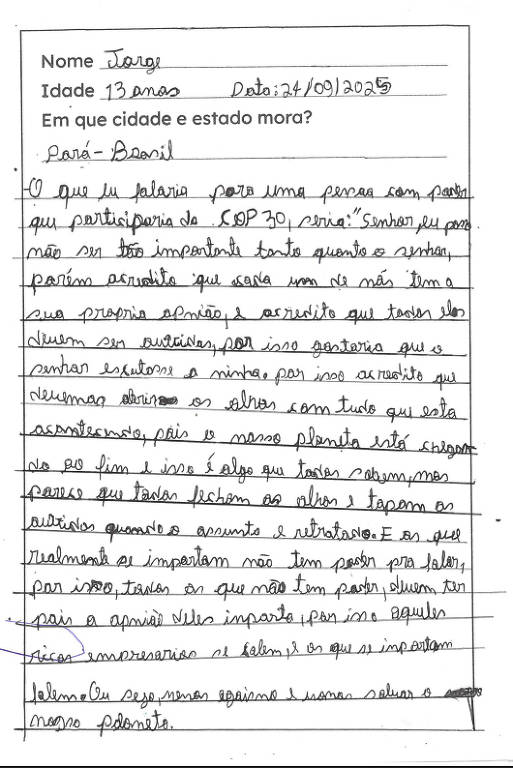 Nome Jorge
Idade 13 anos Data: 24/09/2025
Em que cidade e estado mora?
Pará - Brasil
O que eu falaria para uma pessoa com poder
que participaria da COP 30, seria: "Senhor, eu posso
não ser tão importante tanto quanto o senhor,
porém acredito que cada um de nós tem a
sua propria opnião, e acredito que todas elas
devem ser ouvidas, por isso gostaria que o
senhor escutasse a minha. por isso acredito que
devemos abrir os olhos com tudo que esta
acontecendo, pois o nosso planeta está chegan
do ao fim e isso é algo que todos sabem, mas
parece que todos fecham os olhos e tapam os
ouvidos quando o assunto e retratado. E os que
realmente se importam não tem poder pra falar,
por isso, todos os que não tem poder, devem ter
pois a opnião deles inporta, por isso aqueles
ricos empresarios se calem, e os que se inportam
falem. Ou seja, menos egoismo e vamos salvar o
nosso planeta.